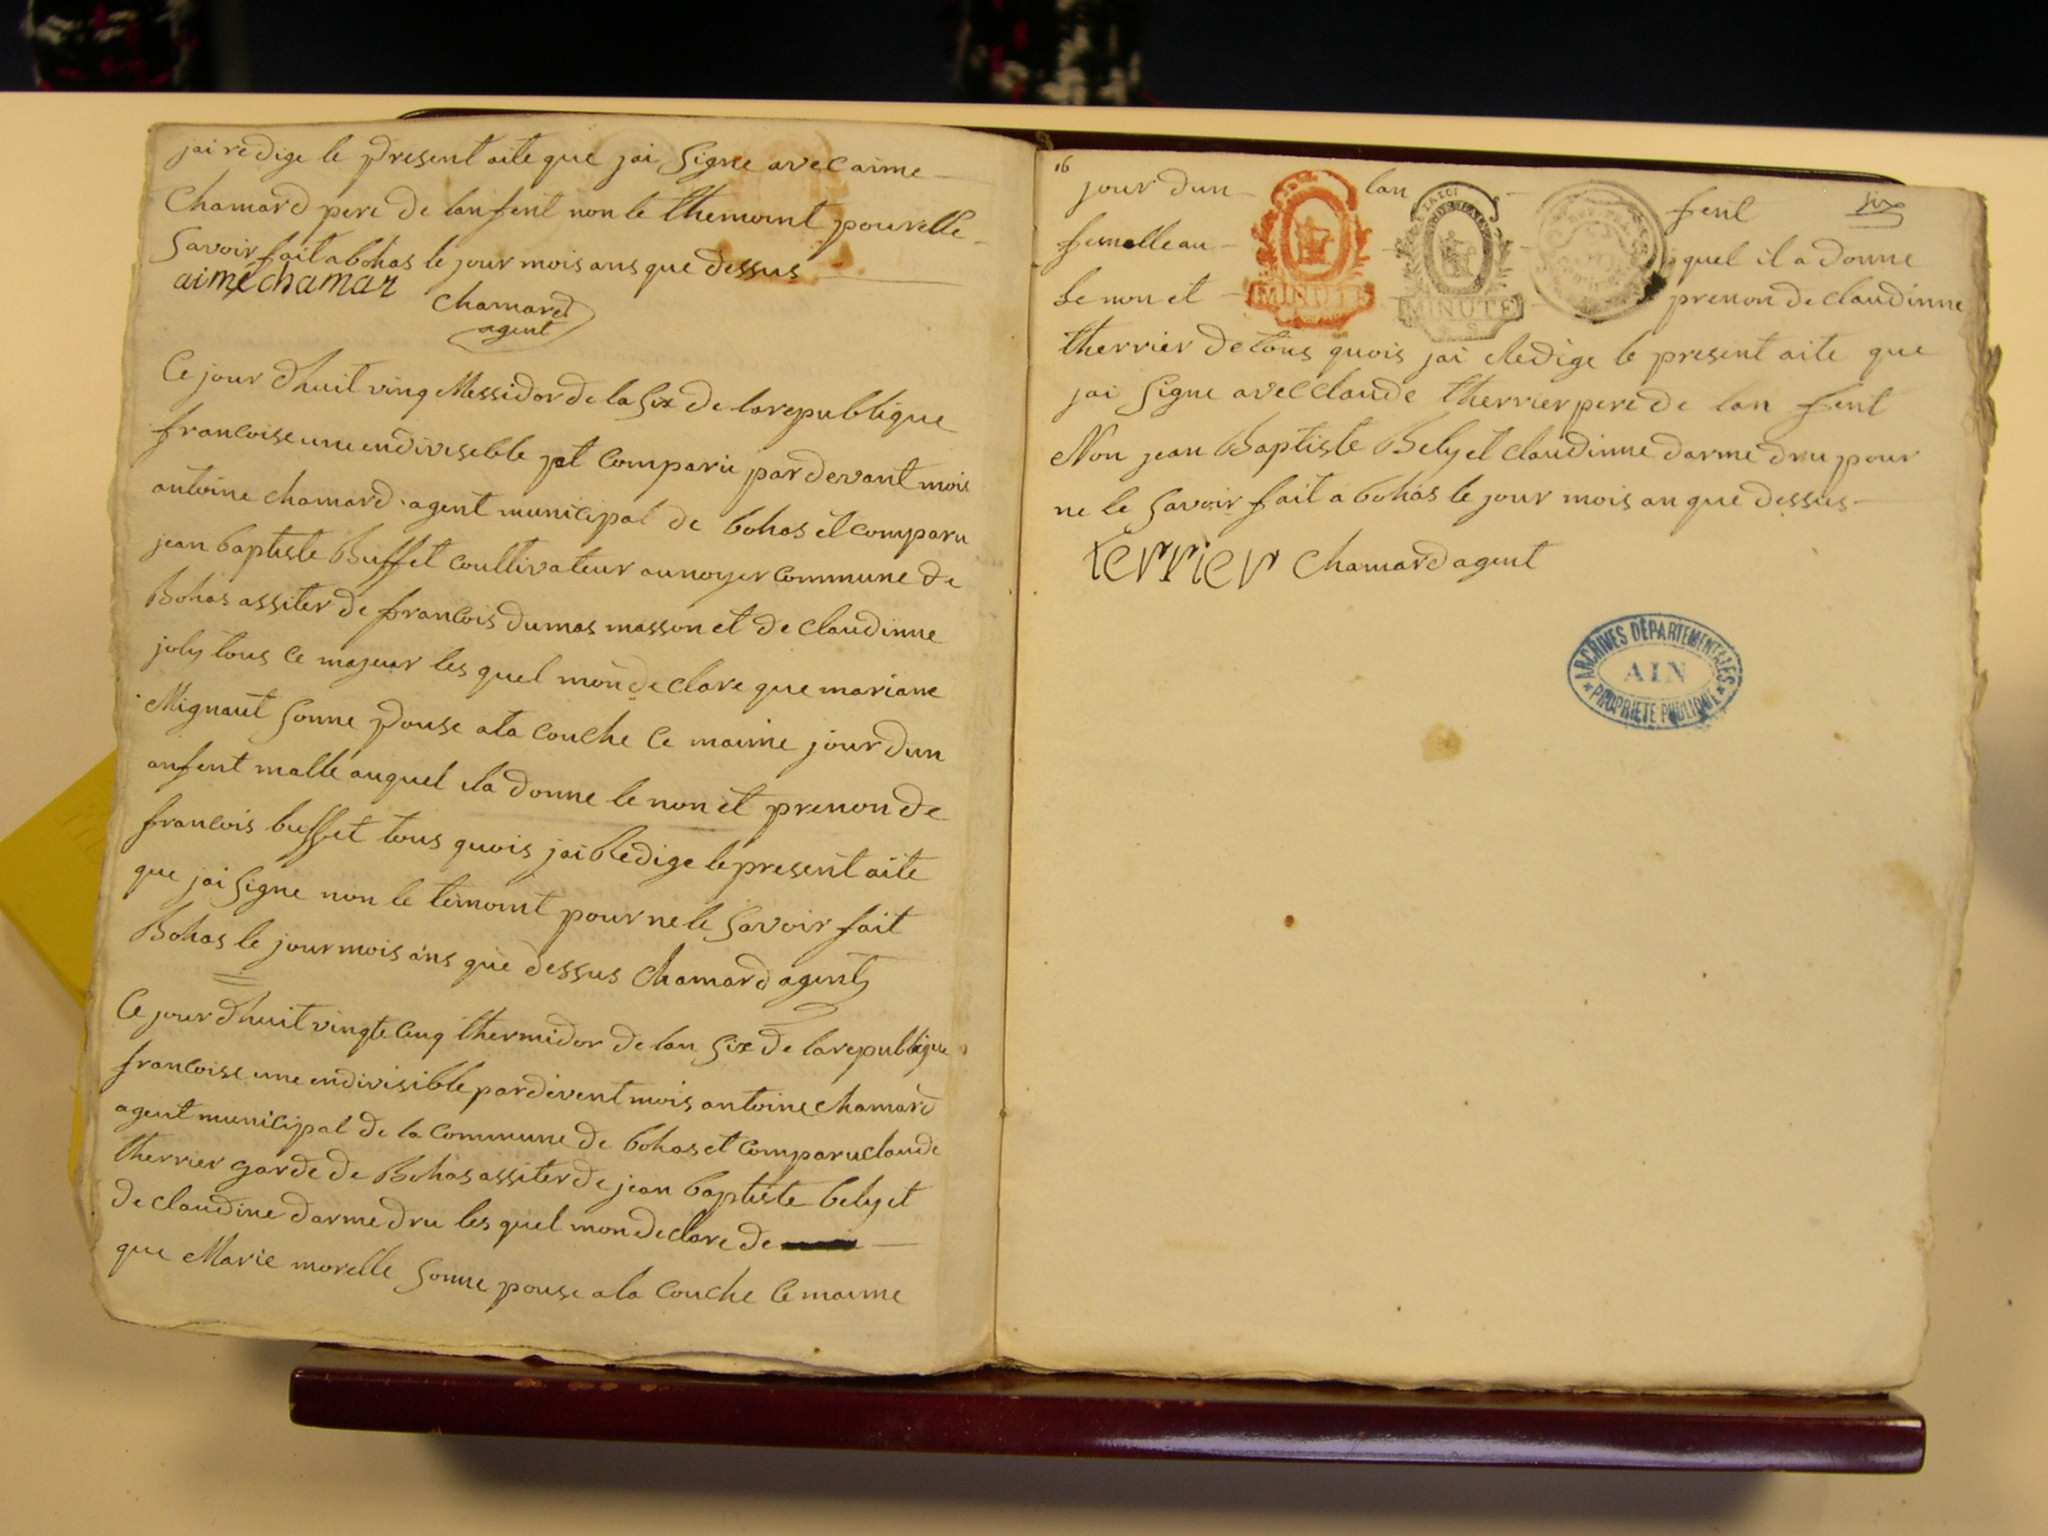 jai redige le present aite que jai signe avec aime
chamard pere de lanfent non le themoint pour elle
savoir fait a bohas le jour mois ans que dessus
aimé chamar
chamard
agent
Ce jour dhuit ving Messidor de la six de la republique
francoise une endivisible et comparu par devant mois
antoine chamard agent municipal de bohas et comparu
jean baptiste Buffet coultivateur au noyer commune de
Bohas assiter de francois dumas masson et de claudinne
joly tous ce majeur les quel mon declare que mariane
Mignaut sonne pouse a la couche ce maime jour dun
anfent malle auquel ila donne le non et prenon de
francois buffet tous quois jai Redige le present aite
que jai signe non le temoint pour ne le savoir fait
Bohas le jour mois ans que dessus chamard agent
Ce jour dhuit vingte cinq thermidor de lan six de la republique
francoise une endivisible par divent mois antoine chamard
agent municipal de la commune de bohas et comparu claude
therrier garde de Bohas assiter de jean baptiste bely et
de claudine darmedru les quel mon declare de
que Marie morelle sonne pouse a la couche ce maime
16
six
jour dun lan fent
femelle au quel il a donne
le non et prenon de claudinne
therrier de tous quois jai Redige le present aite que
jai signe avec claude therrier pere de lan fent
Non jean Baptiste Bely et claudinne darmedru pour
ne le savoir fait a bohas le jour mois an que dessus
terrier chamard agent
MINUTE
MINUTE
ARCHIVES DÉPARTEMENTALES
AIN
PROPRIÉTÉ PUBLIQUE